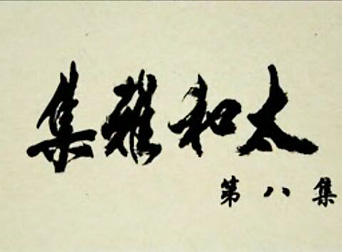 太和雅集
第八集